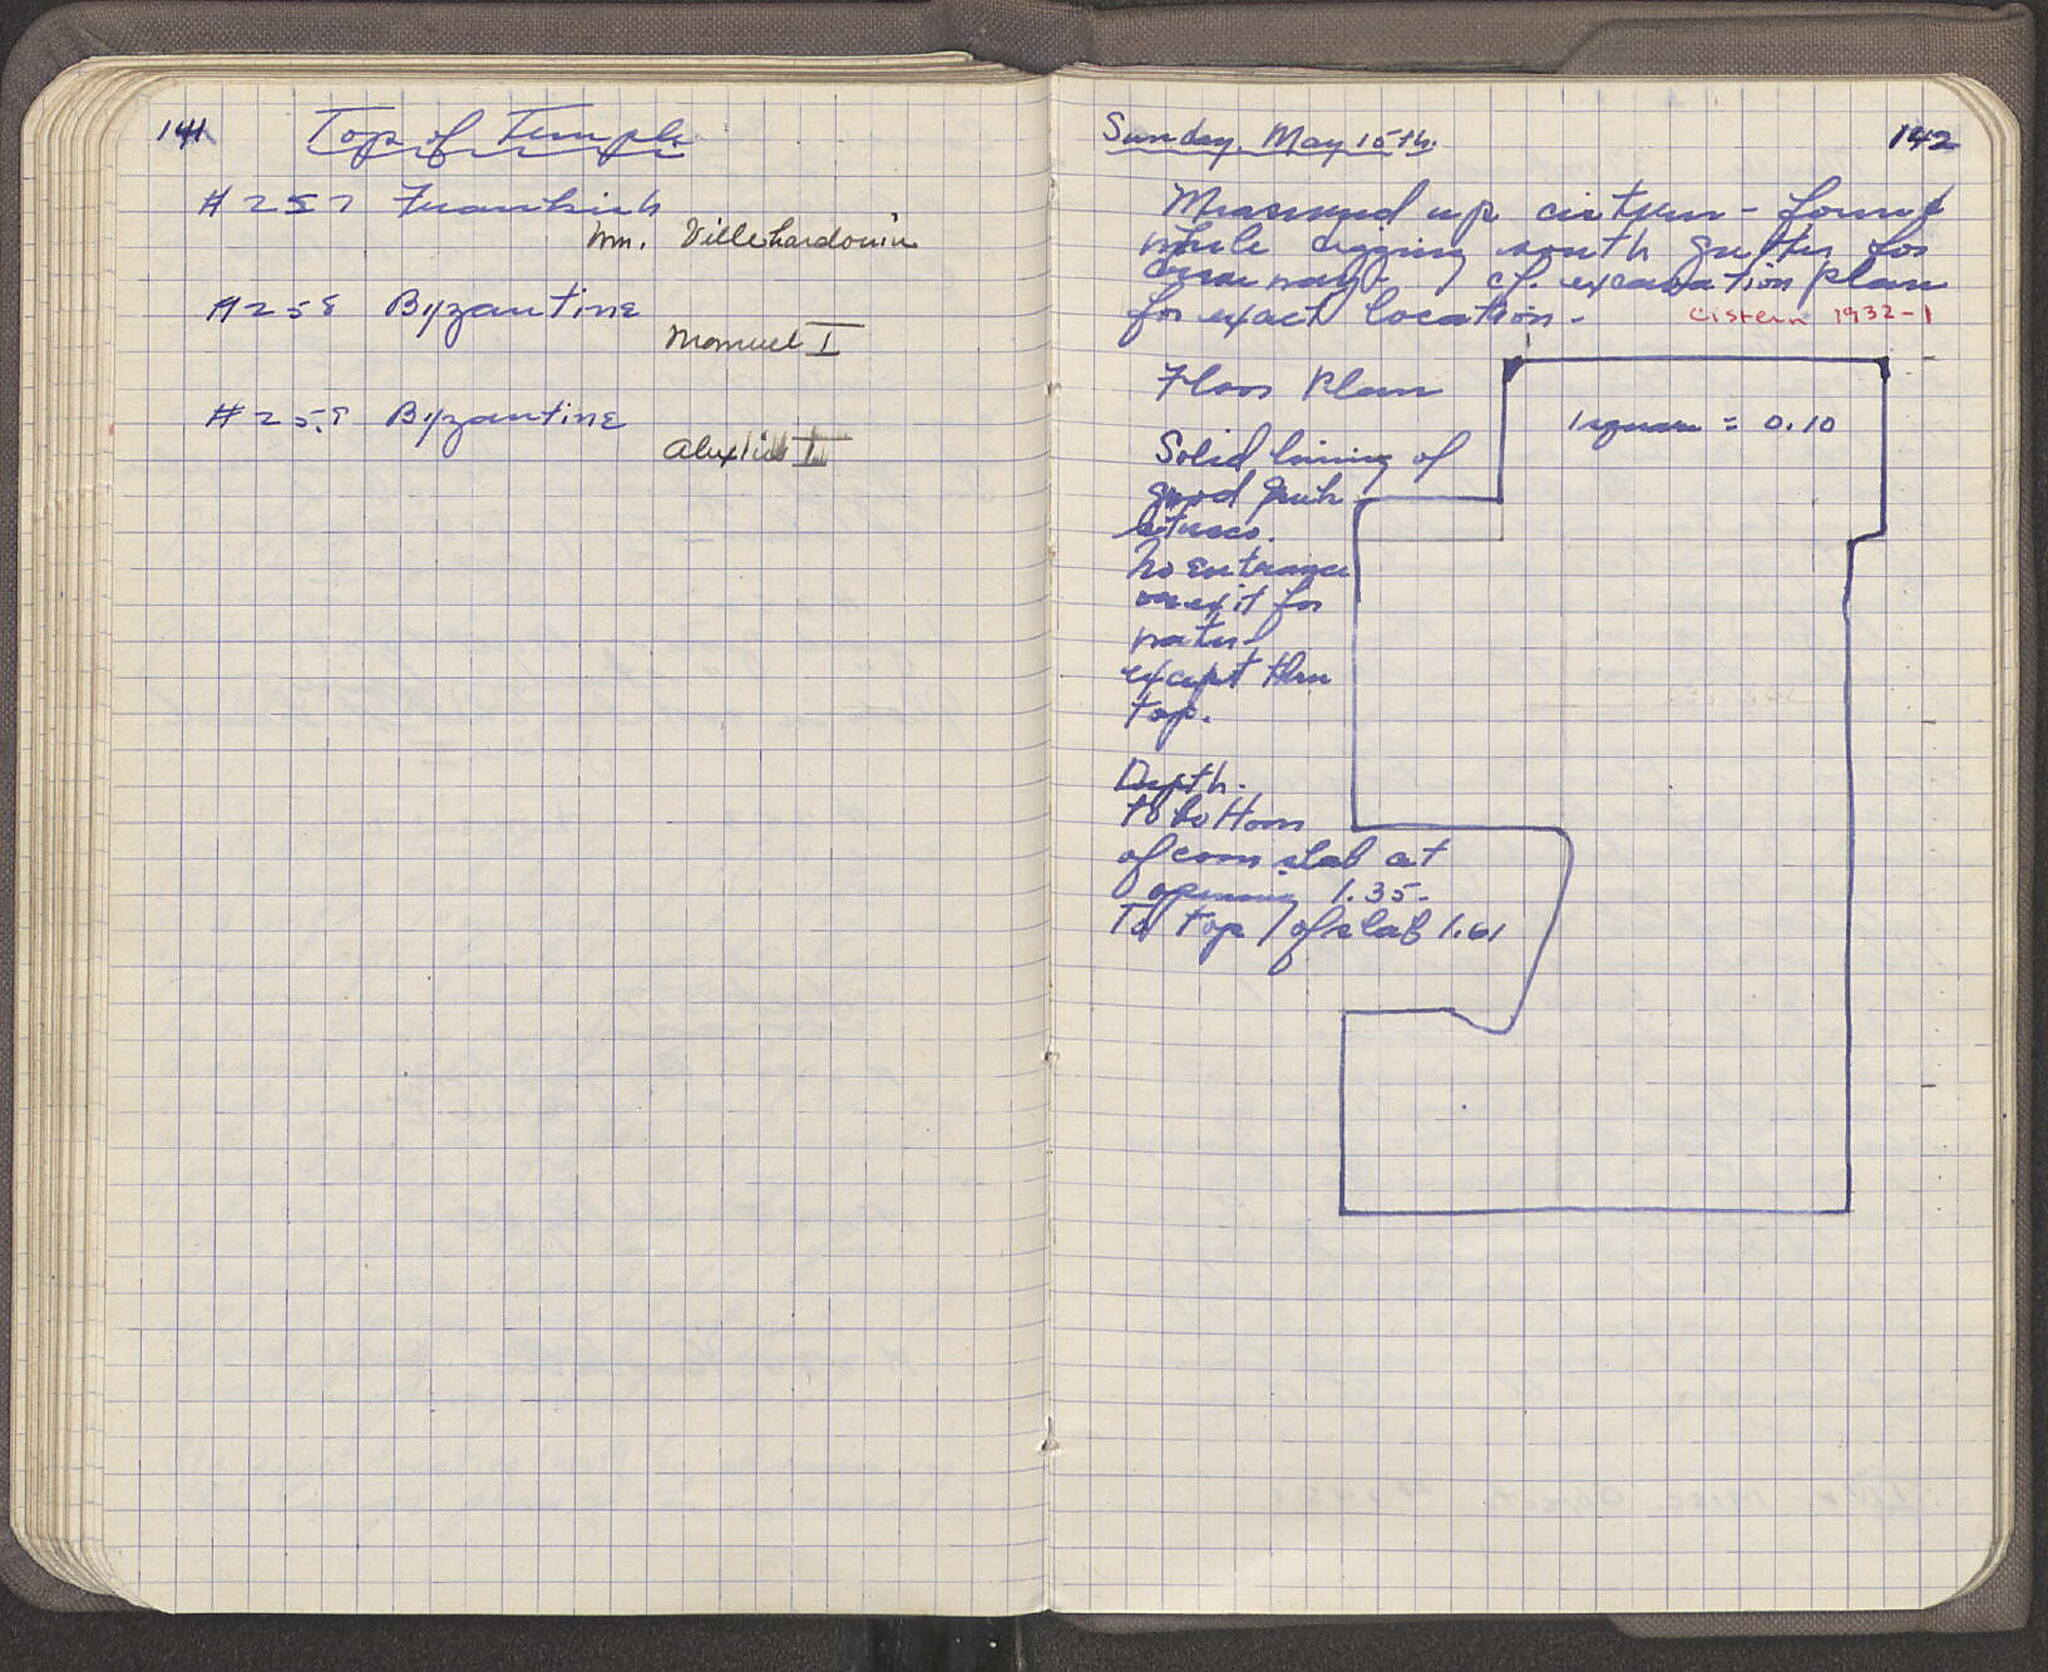 141
Top of Temple
#257 Frankish
Wm. Villehardouin
#258 Byzantine
Manuel I
#259 Byzantine
Alexius I
142
Sunday. May 15th.
Measured up cistern - found
while digging south gutter for
. cf. excavation plan
for exact location -
cistern 1932-1
Floor Plan
1 square = 0.10
Solid lining of
good
stucco.
No entrance
or exit for
water -
except thru
top.
Depth.
to bottom
of cover slab at
opening 1.35 -
To top of slab 1.61